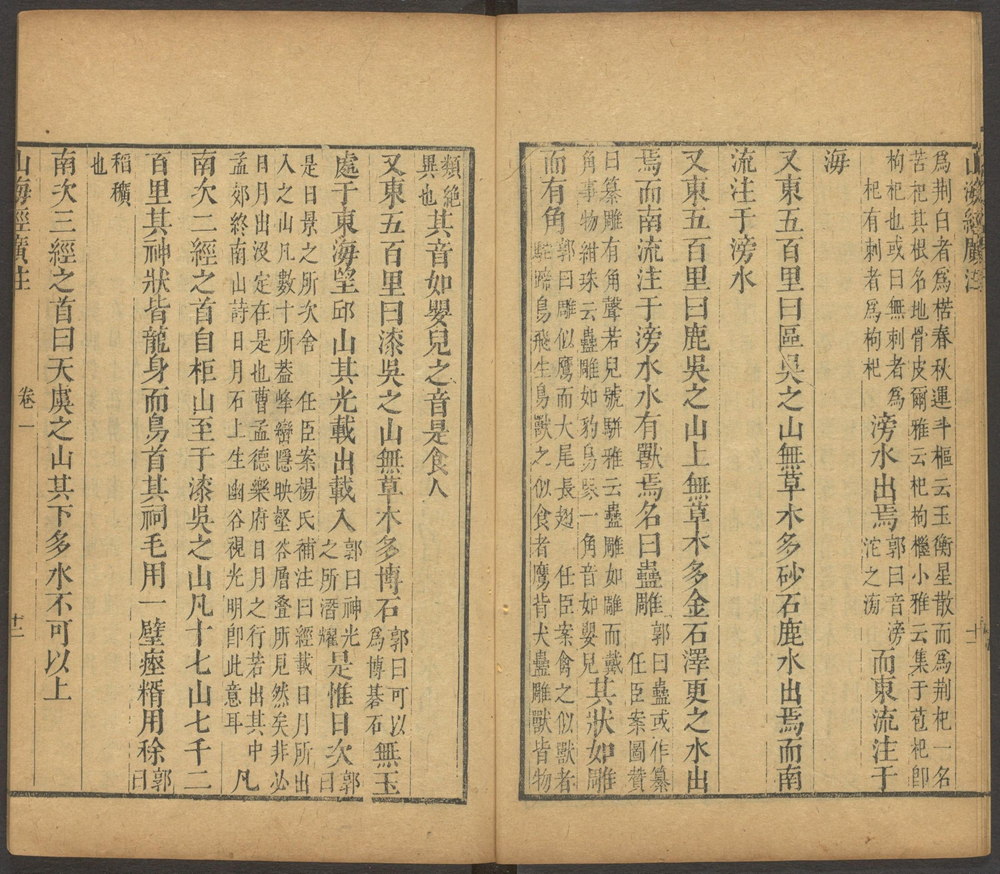 山海經廣注 十一
為荆白者為楛春秋運斗樞云玉衡星散而為荆杞一名
苦杞其根名地骨皮爾雅云杞枸檵小雅云集于苞杞即
枸杞也或曰無刺者為
杞有刺者為枸杞
滂水出焉
郭曰音滂
沱之滂
而東流注于
海
又東五百里曰區吳之山無草木多砂石鹿水出焉而南
流注于滂水
又東五百里曰鹿吳之山上無草木多金石澤更之水出
焉而南流注于滂水水有獸焉名曰蠱雕
郭曰蠱或作纂
任臣案圖贊
曰纂雕有角聲若兒號駢雅云蠱雕如雕而戴
角事物紺珠云蠱雕如豹鳥喙一角音如嬰兒
其狀如雕
而有角
郭曰雕似鷹而大尾長翅 任臣案禽之似獸者
駝蹄鳥飛生鳥獸之似食者鷹背犬蠱雕獸皆物
類絕
異也
其音如嬰兒之音是食人
又東五百里曰漆吳之山無草木多博石
郭曰可以
為博碁石
無玉
處于東海望邱山其光載出載入
郭曰神光
之所潛耀
是惟日次
郭
曰
是日景之所次舍 任臣案楊氏補注曰經載日月所出
入之山凡數十所葢峰巒隱映壑谷層叠所見然矣非必
日月出沒定在是也曹孟德樂府日月之行若出其中
孟郊終南山詩日月石上生幽谷視光明卽此意耳
凡
南次二經之首自柜山至于漆吳之山凡十七山七千二
百里其神狀皆龍身而鳥首其祠毛用一璧瘞糈用稌
郭
曰
稻穬
也
南次三經之首曰天虞之山其下多水不可以上
山海經廣注 卷一 十二